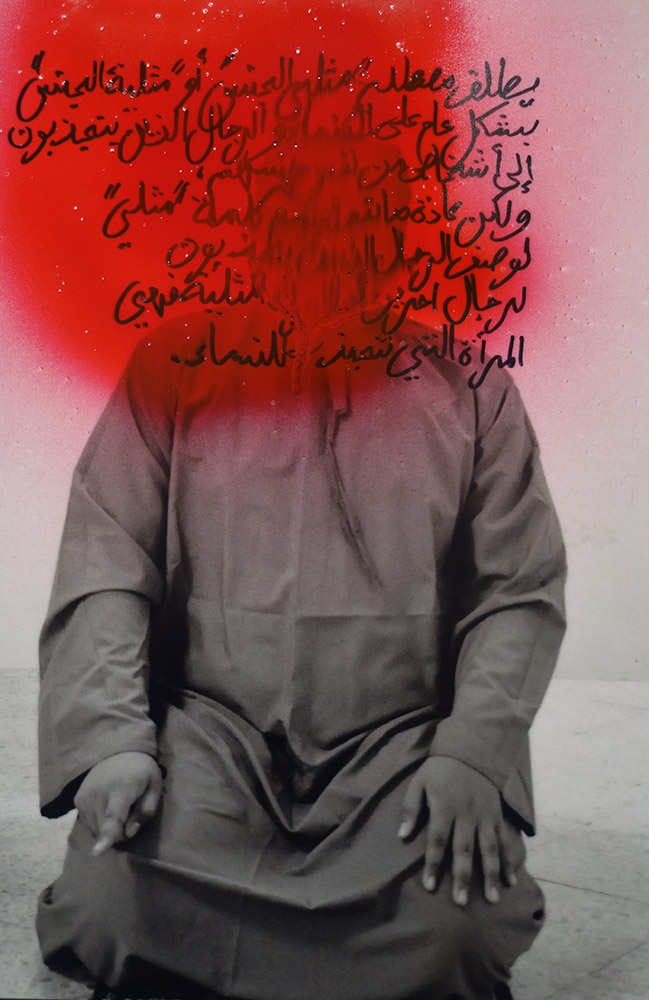 يطلق مصطلح "مثلي الجنس" أو "مثلية الجنس"
بشكل عام على النساء و الرجال الذين ينجذبون
إلى أشخاص من نفس جنسهم،
ولكن عادة ما كلمة "مثلي"
لوصف الرجال
لرجال اخرين المثلية فهي
المرأة التي تنجذب للنساء.